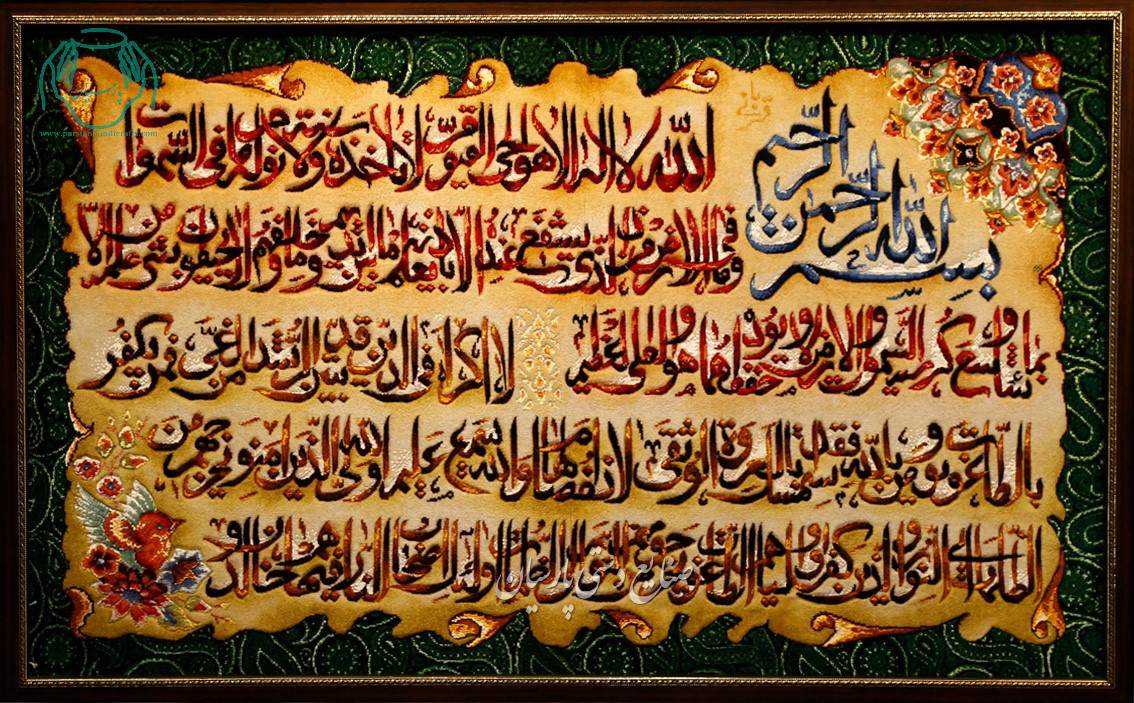 بسم الله الرحمن الرحیم
الله لا اله الا هو الحی القیوم لا تأخذه سنة ولا نوم له ما فی السموات
وما فی الارض من ذا الذی یشفع عنده الا باذنه یعلم ما بین ایدیهم وما خلفهم ولا یحیطون بشیء من علمه الا
بما شاء وسع کرسیه السموات والارض ولا یؤده حفظهما وهو العلی العظیم لا اکراه فی الدین قد تبین الرشد من الغی فمن یکفر
بالطاغوت ویؤمن بالله فقد استمسک بالعروة الوثقی لا انفصام لها والله سمیع علیم الله ولی الذین امنوا یخرجهم من
الظلمات الی النور والذین کفروا اولیاؤهم الطاغوت یخرجونهم من النور الی الظلمات اولئک اصحاب النار هم فیها خالدون
صنایع دستی پارسیان